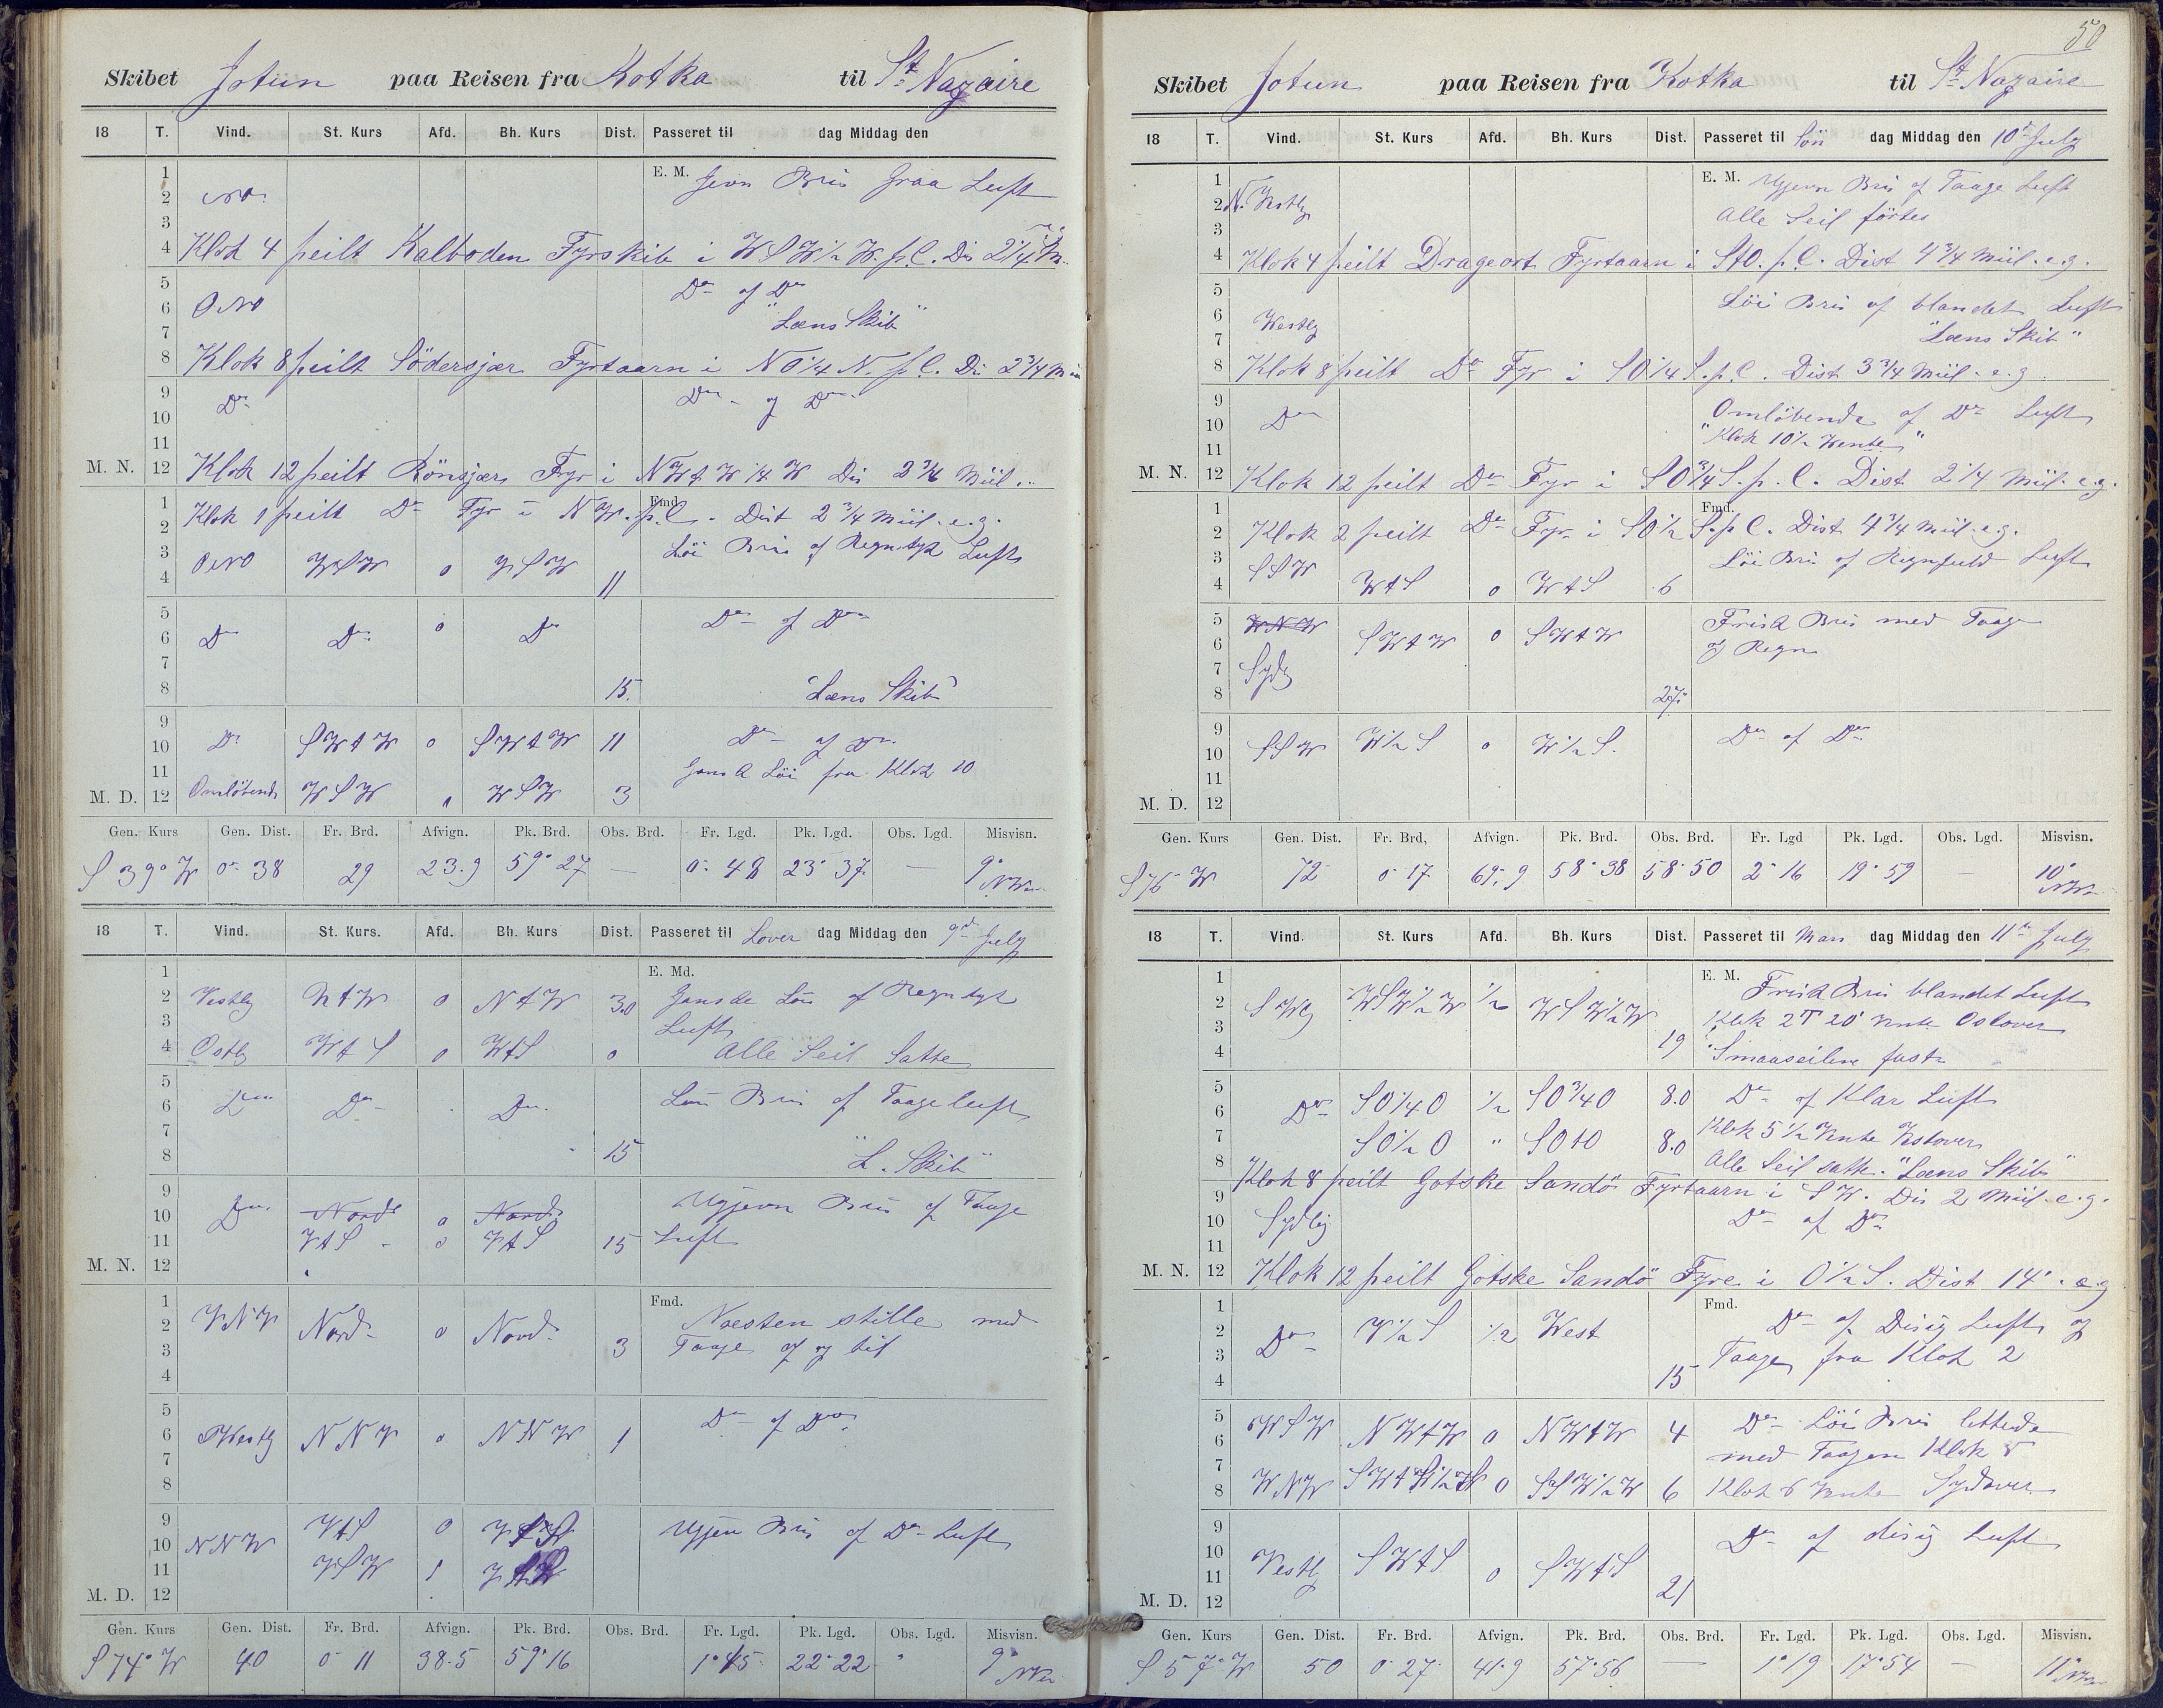 Skibet Jotun paa Reisen fra Kotka til St Nazaire
18 T. Vind. St. Kurs Afd. Bh. Kurs Dist. Passeret til dag Middag den
1 E. M. Jevn Bris Graa Luft
2 NO.
3
4 Klok 4 peilt Kalboden Fyrskib i WSW½W. p.C. Dis 2¼ M
5 Do of Do
6 ONO "Læns Skib"
7
8 Klok 8 peilt Södersjær Fyrtaarn i NO¼N. p.C. Di 2¾ M
9 Do Do - of Do
10
11
M. N. 12 Klok 12 peilt Rönsjær Fyr i NWtW¼W Dis 2¾ Miil.
1 Klok 1 peilt Do Fyr i NW. p.C. Dist 2¾ Miil. e.g. Fmd.
2
3 ONO WSW 0 WSW Löi Bris of Regntyk Luft
4 11
5 Do of Do
6 Do Do 0 Do
7
8 15. "Læns Skib"
9
10 Do SWtW 0 SWtW 11 Do of Do
11 Ganske Löi fra Klok 10
M. D. 12 Omlöbende WSW WSW 3
Gen. Kurs Gen. Dist. Fr. Brd. Afvign. Pk. Brd. Obs. Brd. Fr. Lgd. Pk. Lgd. Obs. Lgd. Misvisn.
S 39° W 0° 38 29 23.9 59° 27 — 0° 48 23° 37 — 9° NW
18 T. Vind. St. Kurs. Afd. Bh. Kurs Dist. Passeret til Löver dag Middag den 9d July
1 E. Md.
2 Vestlig NtW 0 NtW 3.0 Ganske Löi of Regntyk
3 Luft
4 Ostlig WtS 0 WtS 0 Alle Seil Satte
5
6 Do Do Do Löi Bris of Taageluft
7
8 15 "L. Skib"
9
10 Do Nord 0 Nord Ujjevn Bris of Taage
11 WtS 0 WtS 15 Luft
M. N. 12
1 Fmd.
2 WNW Nord 0 Nord Næsten stille med
3 3 Taage of og til
4
5
6 Westlig NNW 0 NNW 1 Do of Do
7
8
9 WtS 0
10 NNW Ujjevn Bris of Do Luft
11 WSW
M. D. 12
Gen. Kurs Gen. Dist. Fr. Brd. Afvign. Pk. Brd. Obs. Brd. Fr. Lgd. Pk. Lgd. Obs. Lgd. Misvisn.
S 74° W 40 0° 11 38.5 59° 16 1° 15 22° 22 9°
50
Skibet Jotun paa Reisen fra Kotka til St Nazaire
18 T. Vind. St. Kurs Afd. Bh. Kurs Dist. Passeret til Sön dag Middag den 10d July
1 E. M. Ujjevn Bris of Taage Luft
2 N. Vestlig Alle Seil förtes
3
4 Klok 4 peilt Drageort Fyrtaarn i StO. p.C. Dist 4¾ Miil. e.g.
5 Löi Bris of blandet Luft
6 Westlig
7 "Læns Skib"
8 Klok 8 peilt Do Fyr i SO¼S. p.C. Dist 3¾ Miil. e.g.
9 Omlöbende of Do Luft
10 Do "Klok 10½ Vente"
11
M. N. 12 Klok 12 peilt Do Fyr i SO¾S. p.C. Dist 2¼ Miil. e.g.
1 Fmd.
2 Klok 2 peilt Do Fyr i SO½S. p.C. Dist 4¾ Miil. e.g.
3 SSW Löi Bris of Regnfuld Luft
4 WtS 0 WtS 6
5 WNW Frisk Bris med Taage
6 SWtW 0 SWtW og Regn
7 Sydlig
8 27.
9
10 SSW W½S 0 W½S. Do of Do
11
M. D. 12
Gen. Kurs Gen. Dist. Fr. Brd. Afvign. Pk. Brd. Obs. Brd. Fr. Lgd Pk. Lgd. Obs. Lgd. Misvisn.
S 76° W 72 0° 17 69.9 58° 38 58° 50 2° 16 19° 59 — 10° NW
18 T. Vind. St. Kurs Afd. Bh. Kurs Dist. Passeret til Man dag Middag den 11d July
1 E. M. Frisk Bris blandet Luft
2 SWlig WSW½W ½ WSW½W Klok 2T 20' Vente Ostover
3
4 19 Smaaseilene fast
5
6 Do SO¼O ½ SO¾O 8.0 Do of Klar Luft
7 SO½O " SOtO 8.0 Klok 5½ Vente Vestover
8 Alle Seil satte. "Læns Skib"
Klok 8 peilt Gotske Sandö Fyrtaarn i SW. Dis 2 Miil. e.g.
9
10 Sydlig Do of Do
11
M. N. 12 Klok 12 peilt Gotske Sandö Fyre i O½S. Dist 14'. e.g
1 Fmd.
2 Do W½S ½ West Do of Disig Luft og
3 Taage fra Klok 2
4 15
5 WSW NWtW 0 NWtW 4 Do Löi Bris lettede
6 med Taagen Klok 8
7
8 WNW 0 SSW½W 6 Klok 6 Vente Sydover
9
10 Do of disig Luft
11 Vestlig SWtS 0 SWtS
M. D. 12 21
Gen. Kurs Gen. Dist. Fr. Brd. Afvign. Pk. Brd. Obs. Brd. Fr. Lgd. Pk. Lgd. Obs. Lgd. Misvisn.
S 57° W 50 0° 27 41.9 57° 56 — 1° 19 17° 54 — 11°